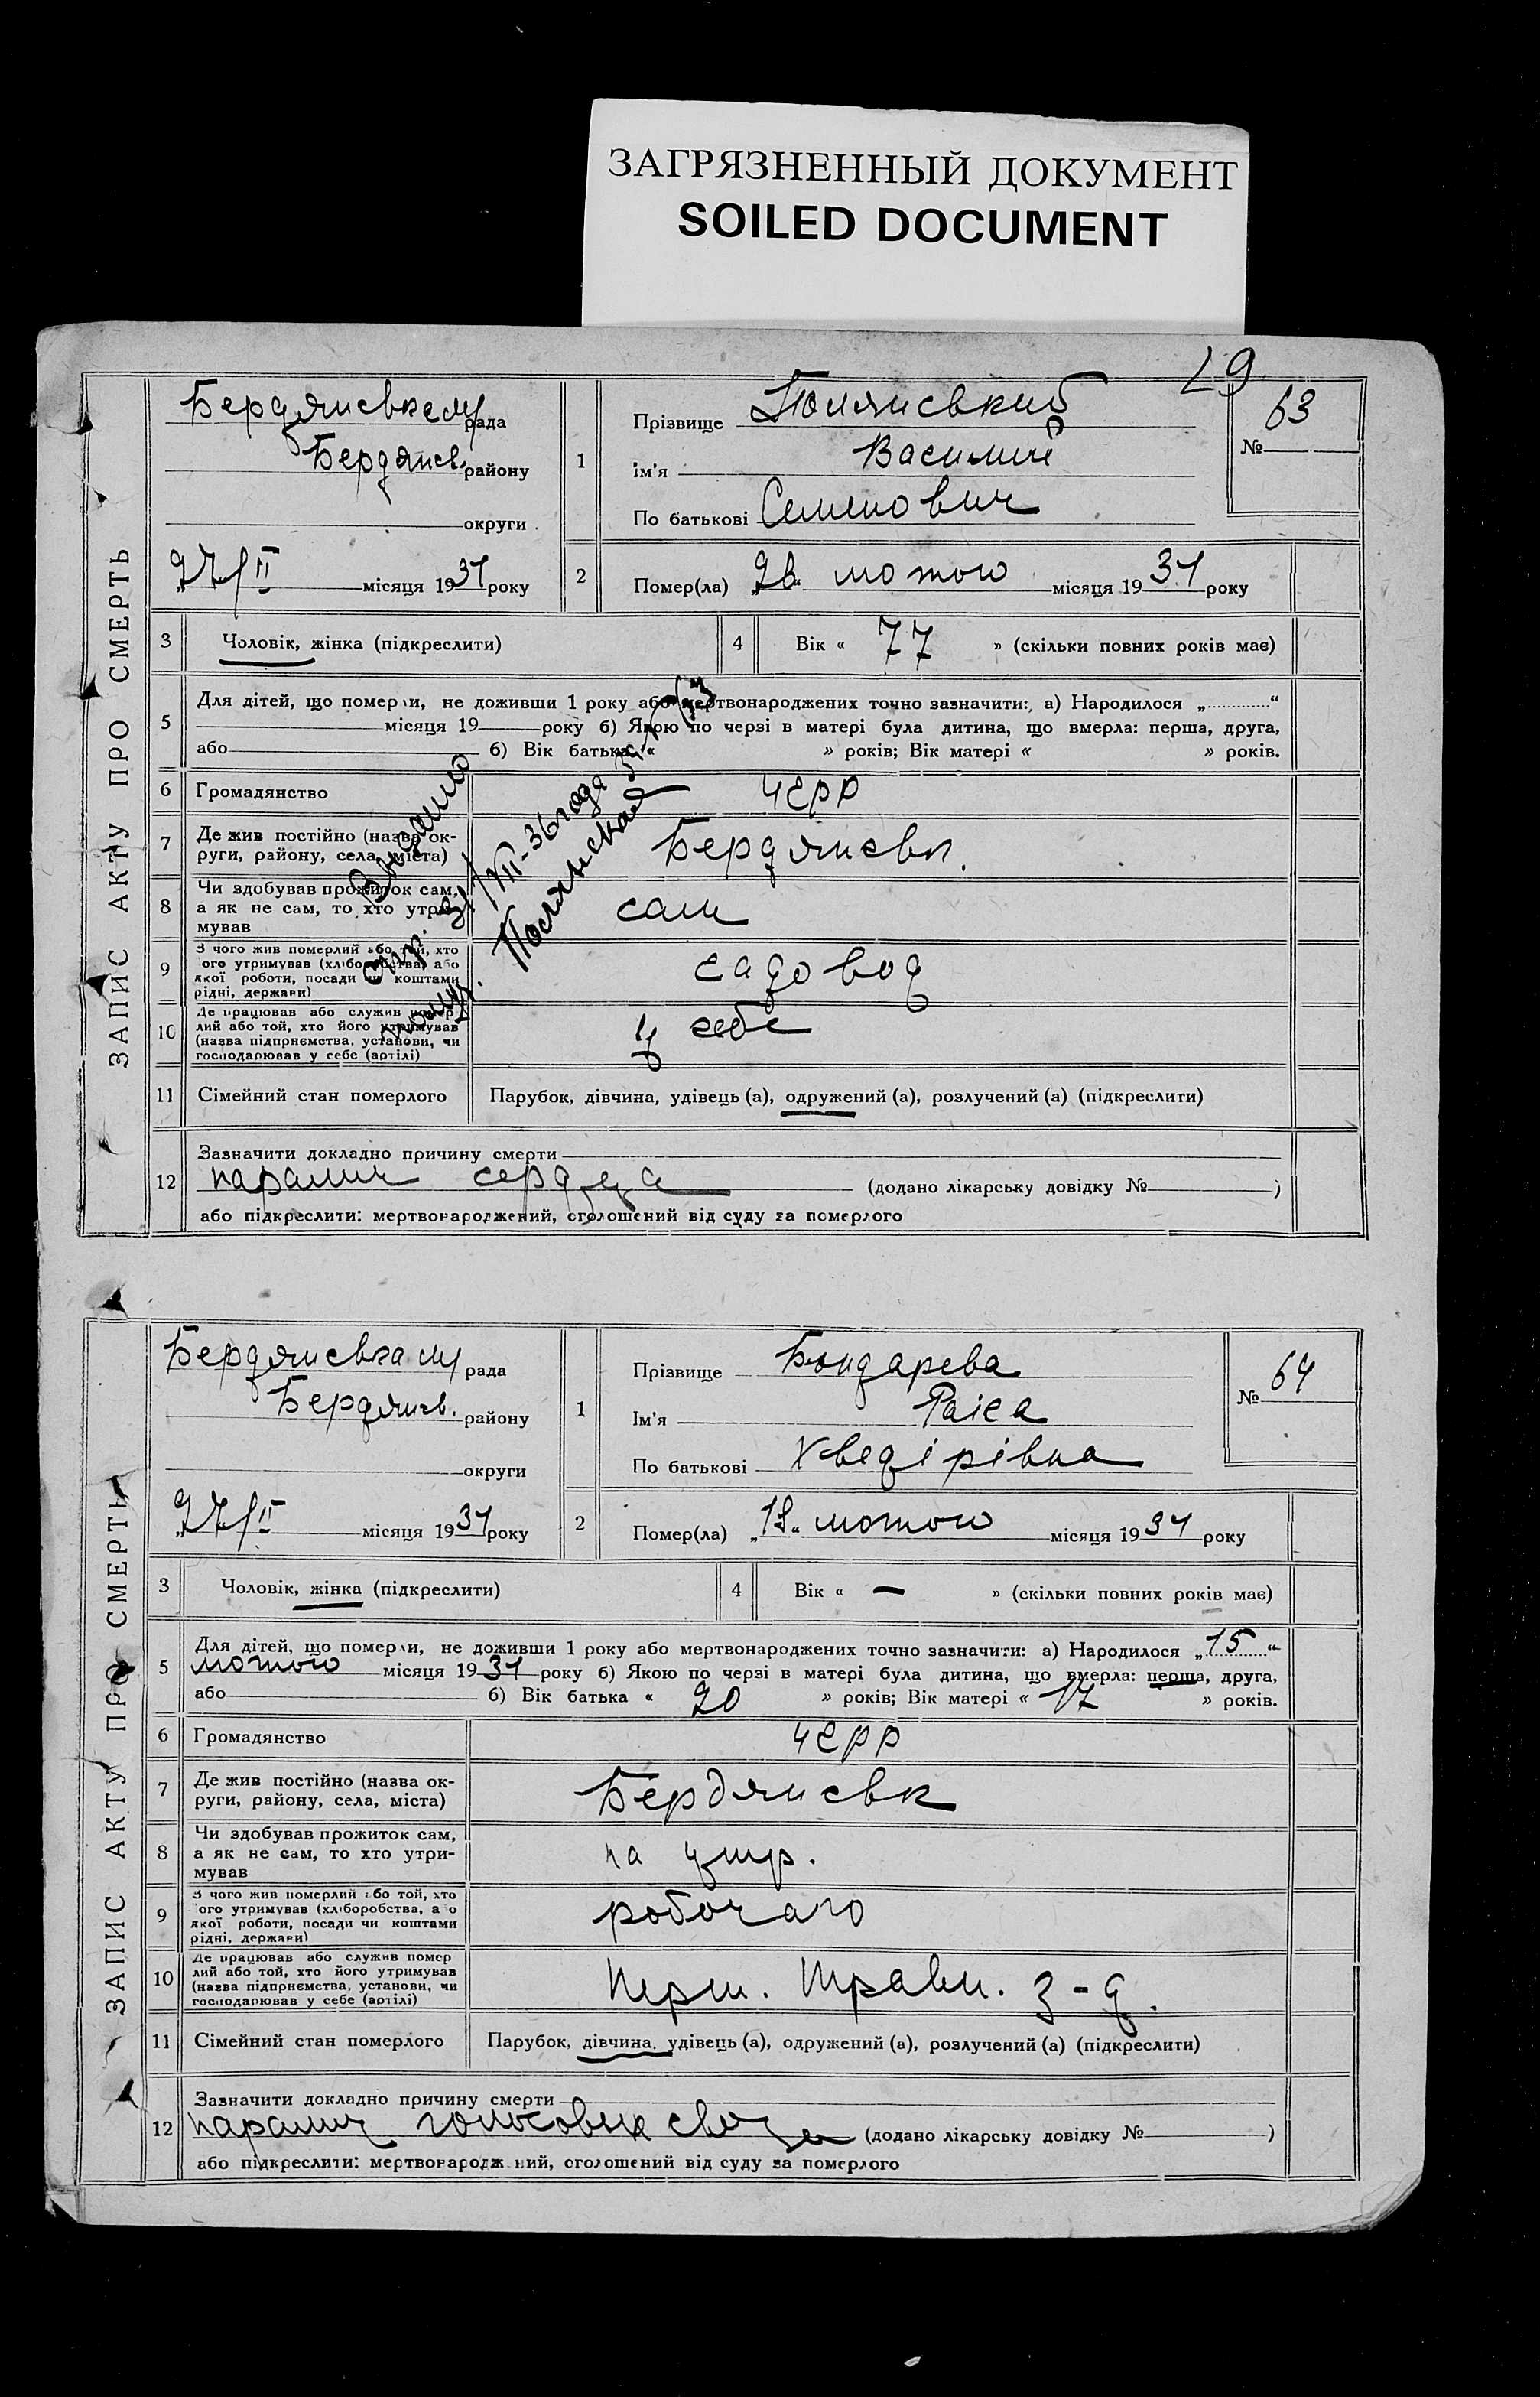 ЗАГРЯЗНЕННЫЙ ДОКУМЕНТ
SOILED DOCUMENT
ЗАПИС АКТУ ПРО СМЕРТЬ
63
№
Бердянська м рада
Бердянсь. району
округи
27/II місяця 1931 року
1
Прізвище Полянський
Ім'я Василий
По батькові Семенович
2
Помер(ла) лютого місяця 1931 року
3 Чоловік, жінка (підкреслити)
4 Вік « 77 » (скільки повних років має)
5 Для дітей, що померли, не доживши 1 року або мертвонароджених точно зазначити: а) Народилося „ “
місяця 19 року б) Якою по черзі в матері була дитина, що вмерла: перша, друга,
або б) Вік батька « » років; Вік матері « » років.
6 Громадянство УСРР
7 Де жив постійно (назва ок-
руги, району, села, міста) Бердянськ.
8 Чи здобував прожиток сам,
а як не сам, то хто утри-
мував сам
9 З чого жив померлий або той, хто
ого утримував (хліборобства, або
якої роботи, посади чи коштами
рідні, держави) садовод
10 Де працював або служив помер
лий або той, хто його утримував
(назва підприємства, установи, чи
господарював у себе (артілі) у себе
11 Сімейний стан померлого Парубок, дівчина, удівець (а), одружений (а), розлучений (а) (підкреслити)
12 Зазначити докладно причину смерти
параліч сердца (додано лікарську довідку № )
або підкреслити: мертвонароджений, оголошений від суду за померлого
Выдано
31/VII-36 года
Полянская
ЗАПИС АКТУ ПРО СМЕРТЬ
64
№
Бердянська м рада
Бердянсв. району
округи
27/II місяця 1931 року
1
Прізвище Бондарева
Ім'я Раіса
По батькові Хведірівна
2
Помер(ла) лютого місяця 1931 року
3 Чоловік, жінка (підкреслити)
4 Вік « — » (скільки повних років має)
5 Для дітей, що померли, не доживши 1 року або мертвонароджених точно зазначити: а) Народилося „15“
лютого місяця 1931 року б) Якою по черзі в матері була дитина, що вмерла: перша, друга,
або б) Вік батька « 20 » років; Вік матері « 17 » років.
6 Громадянство УСРР
7 Де жив постійно (назва ок-
руги, району, села, міста) Бердянськ
8 Чи здобував прожиток сам,
а як не сам, то хто утри-
мував на утр.
9 З чого жив померлий або той, хто
ого утримував (хліборобства, або
якої роботи, посади чи коштами
рідні, держави) робочаго
10 Де працював або служив помер
лий або той, хто його утримував
(назва підприємства, установи, чи
господарював у себе (артілі) Перш. Травн. з-д.
11 Сімейний стан померлого Парубок, дівчина, удівець (а), одружений (а), розлучений (а) (підкреслити)
12 Зазначити докладно причину смерти
параліч голосовых (додано лікарську довідку № )
або підкреслити: мертвонароджений, оголошений від суду за померлого